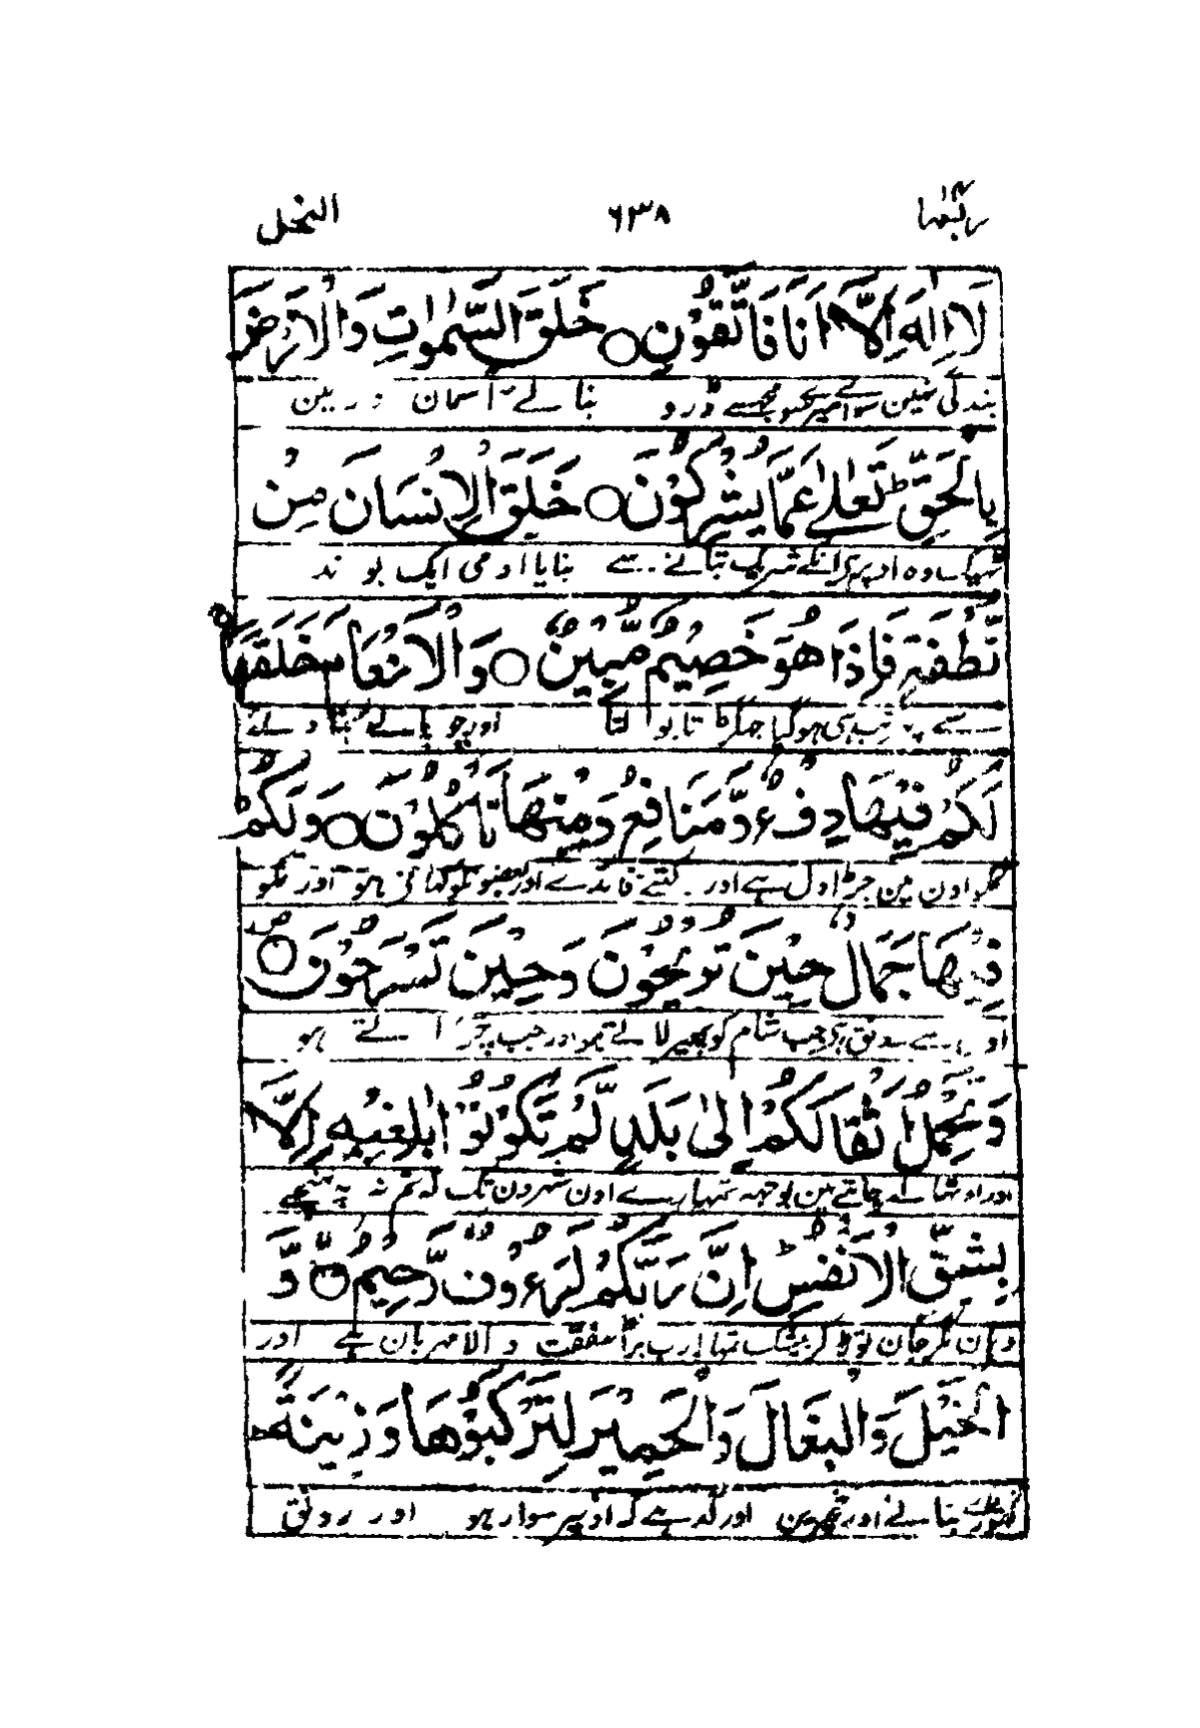 ربما ١٤ ٦٣٨ النحل
لَا اِلٰهَ اِلَّا اَنَا فَاتَّقُوْنِ ○ خَلَقَ السَّمٰوٰتِ وَالْاَرْضَ
بندگی نہین سوا میرے سو مجھسے ڈرو بنائے آسمان و زمین
بِالْحَقِّ ؕ تَعٰلٰى عَمَّا يُشْرِكُوْنَ ○ خَلَقَ الْاِنْسَانَ مِنْ
ٹھیک وہ اوپر ہے انکے شریک بتانے سے بنایا آدمی ایک بوند
نُّطْفَةٍ فَاِذَا هُوَ خَصِيْمٌ مُّبِيْنٌ ○ وَالْاَنْعَامَ خَلَقَهَا
سے پہر تب ہی ہوگیا جہگڑتا بولتا اور چوپائے بنا دئے
لَكُمْ فِيْهَا دِفْءٌ وَّمَنَافِعُ وَمِنْهَا تَاْكُلُوْنَ ○ وَلَكُمْ
تمکو اون مین جڑاول ہے اور کتنے فائدے اور بعضونکو کہاتے ہو اور تمکو
فِيْهَا جَمَالٌ حِيْنَ تُرِيْحُوْنَ وَحِيْنَ تَسْرَحُوْنَ ○ ص
اون سے رونق ہے جب شام کو پھیر لاتے ہو اور جب چراتے ہو
وَتَحْمِلُ اَثْقَالَكُمْ اِلٰى بَلَدٍ لَّمْ تَكُوْنُوْا بٰلِغِيْهِ اِلَّا
اور اوٹھا لے چلتے ہین بوجھہ تمہارے اون شہرون تک کہ تم نہ پہنچتے
بِشِقِّ الْاَنْفُسِ ؕ اِنَّ رَبَّكُمْ لَرَءُوْفٌ رَّحِيْمٌ ○ وَّ
وہان مگر جان توڑ کر بیشک تمہارا رب بڑا شفقت والا مہربان ہے اور
الْخَيْلَ وَالْبِغَالَ وَالْحَمِيْرَ لِتَرْكَبُوْهَا وَزِيْنَةً ؕ
گھوڑے بنائے اور خچرین اور گدہے کہ اونپر سوار ہو اور رونق